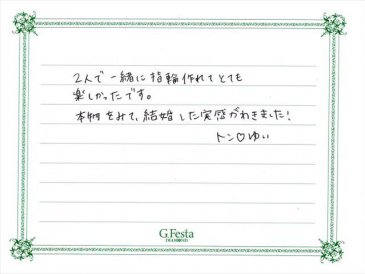 2人で一緒に指輪作れてとても
楽しかったです。
本物をみて、結婚した実感がわきました!
トン♡ゆい
G.Festa
DIAMOND